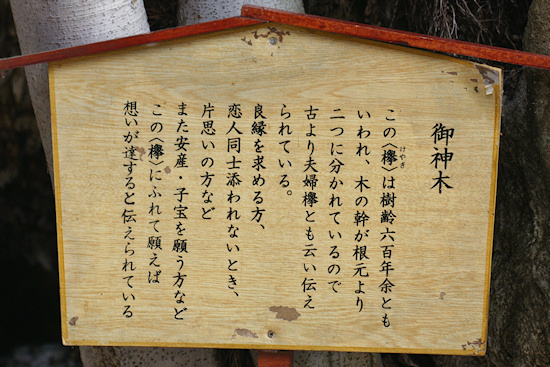 御神木
この〈欅〉は樹齢六百年余とも
けやき
いわれ、木の幹が根元より
二つに分かれているので
古より夫婦欅とも云い伝え
られている。
良縁を求める方、
恋人同士添われないとき、
片思いの方など
また安産 子宝を願う方など
この〈欅〉にふれて願えば
想いが達すると伝えられている